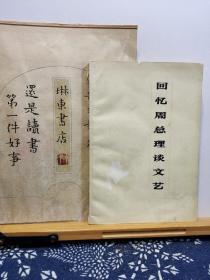 琳東书店
還是讀書
第一件好事
回忆周总理谈文艺